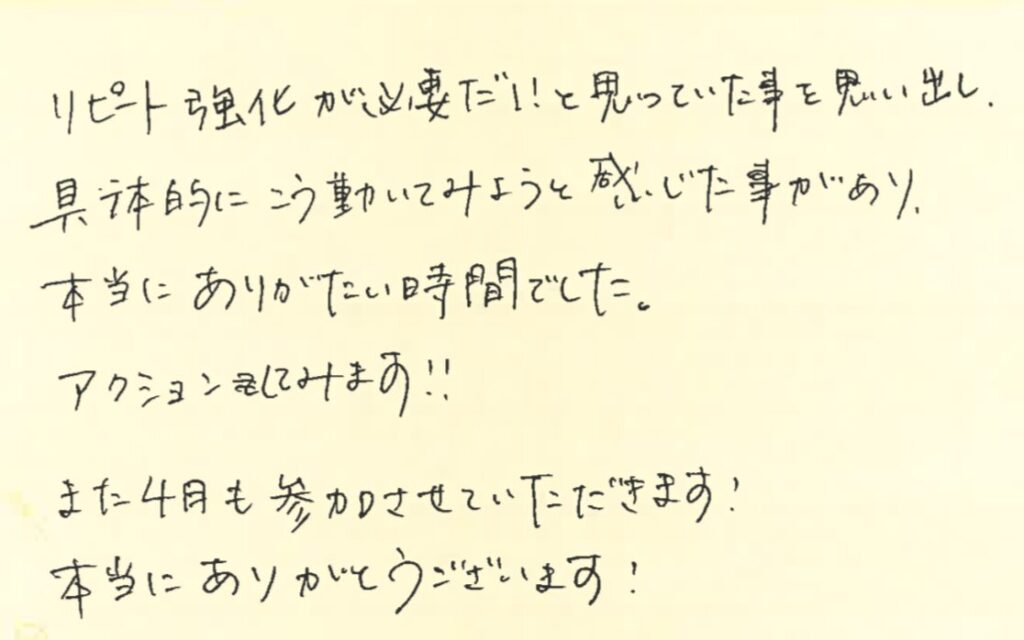 リピート強化が必要だ!!と思っていた事を思い出し、
具体的にこう動いてみようと感じた事があり、
本当にありがたい時間でした。
アクションしてみます!!
また4月も参加させていただきます!
本当にありがとうございます!